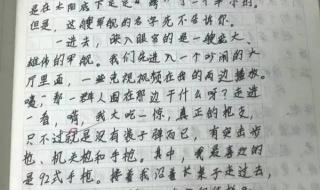 是在太阳底下是
但是，这艘军舰的名字先不告诉你。
一进去，映入眼帘的是一艘宏大、
雄伟的军舰。我们先进入一个吵闹的大
厅里面，一些先视频标在台的两边播放。
嘿！那一群人围在那边干什么呀？走进
一看，啊，我大吃一惊，真正的枪支，
只不过就是没有装子弹而已，有突击步
枪、机关枪和手枪。其中，我最喜欢的
是92式手枪。接着我沿着长桌子走过去，